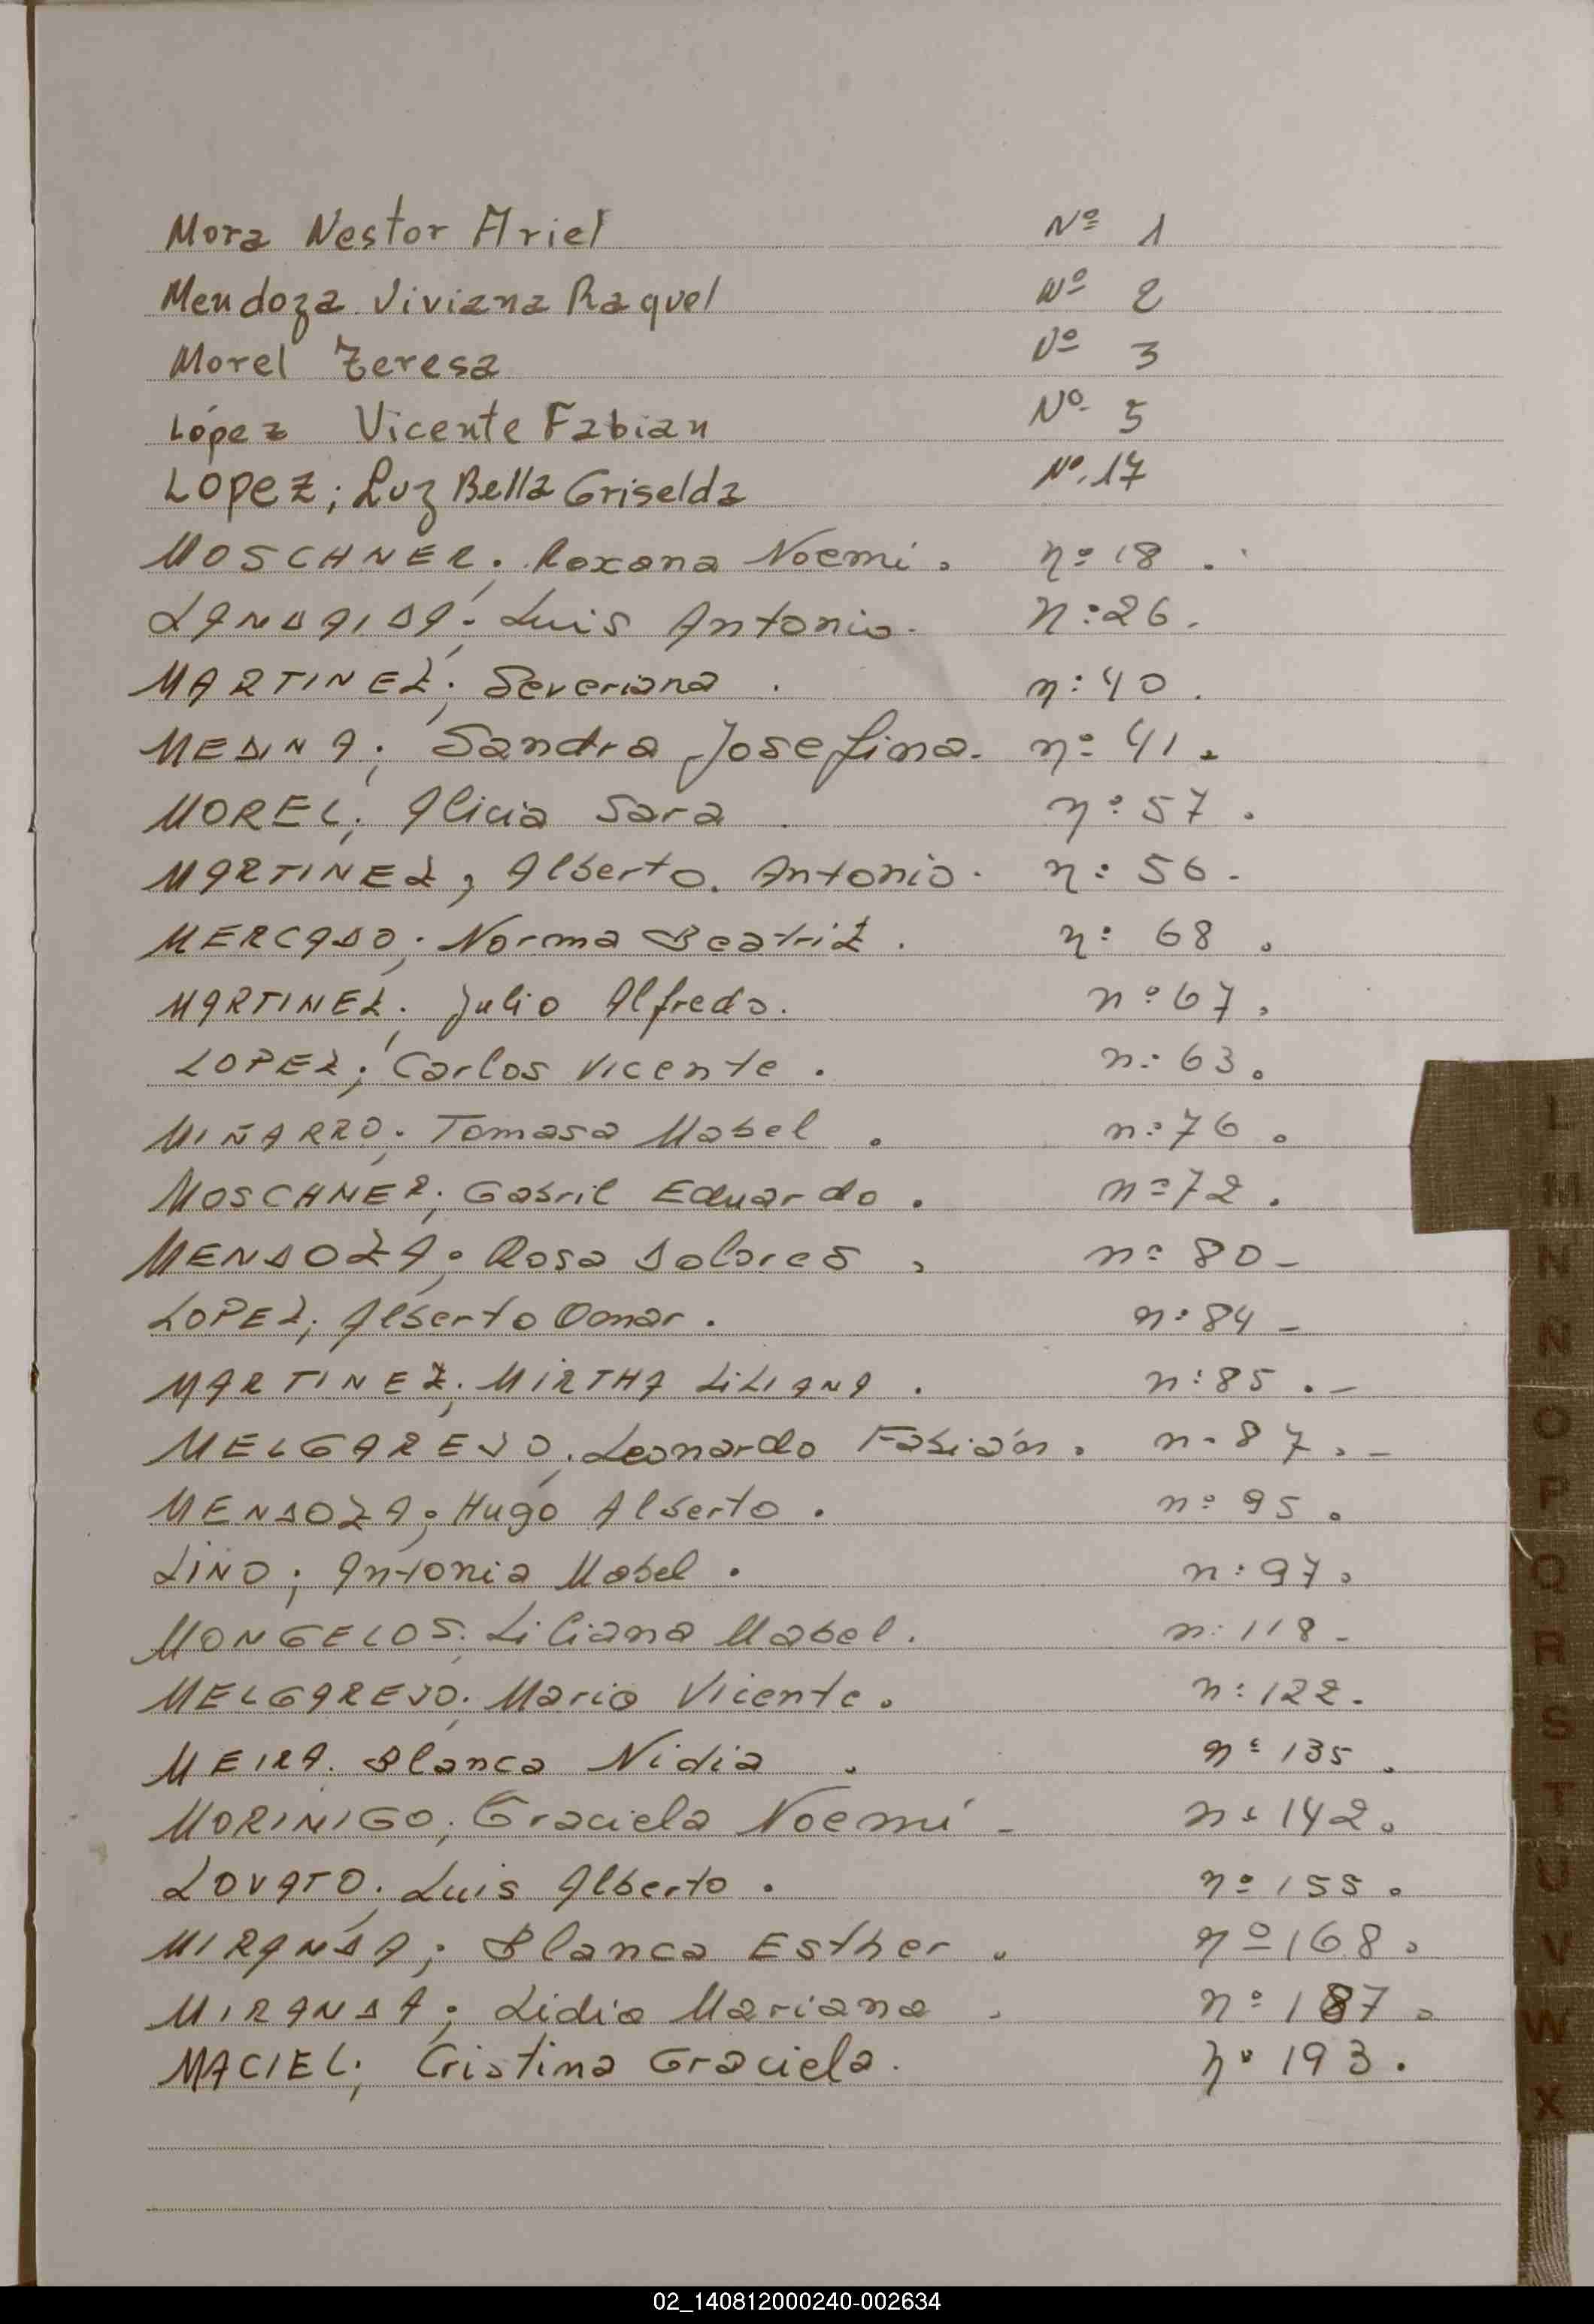 Mora Nestor Ariel Nº 1
Mendoza Viviana Raquel Nº 2
Morel Teresa Nº 3
López Vicente Fabian Nº 5
Lopez; Luz Bella Griselda Nº 17
MOSCHNER; Roxana Noemi. nº 18.
LANDAIDA; Luis Antonio. nº 26.
MARTINEZ; Severiana. nº 40.
MEDINA; Sandra Josefina. nº 41.
MOREL; Alicia Sara. nº 57.
MARTINEZ; Alberto Antonio. nº 56.
MERCADO; Norma Beatriz. nº 68.
MARTINEZ; Julio Alfredo. nº 67.
LOPEZ; Carlos Vicente. nº 63.
MIÑARRO; Tomasa Mabel. nº 76.
MOSCHNER; Gabril Eduardo. nº 72.
MENDOZA; Rosa Dolores. nº 80-
LOPEZ; Alberto Omar. nº 84-
MARTINEZ; MIRTHA LILIANA. nº 85.-
MELGAREJO; Leonardo Fabián. nº 87.-
MENDOZA; Hugo Alberto. nº 95.
LINO; Antonia Mabel. nº 97.
MONGELOS; Liliana Mabel. nº 118-
MELGAREJO; Mario Vicente. nº 122.
MEIRA; Blanca Nidia. nº 135.
MORINIGO; Graciela Noemí- nº 142.
LOVATO; Luis Alberto. nº 155.
MIRANDA; Blanca Esther. nº 168.
MIRANDA; Lidia Mariana. nº 187.
MACIEL; Cristina Graciela. nº 193.
L
M
N
N
O
P
Q
R
S
T
U
V
W
X
02_140812000240-002634